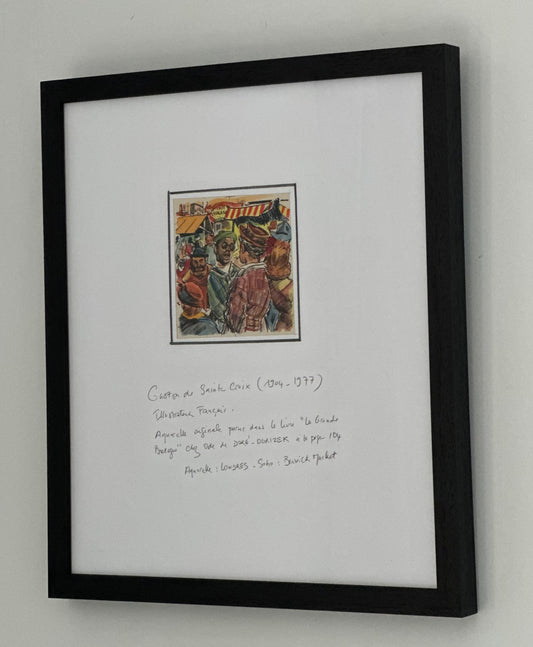 Gaston de Sainte Croix (1904-1977)
Illustrateur Français.
Aquarelle originale parue dans le livre "La Grande
" chez de DORÉ-OGRIZEK à la page 104
Aquarelle : LONDRES - Soho : Berwick Market